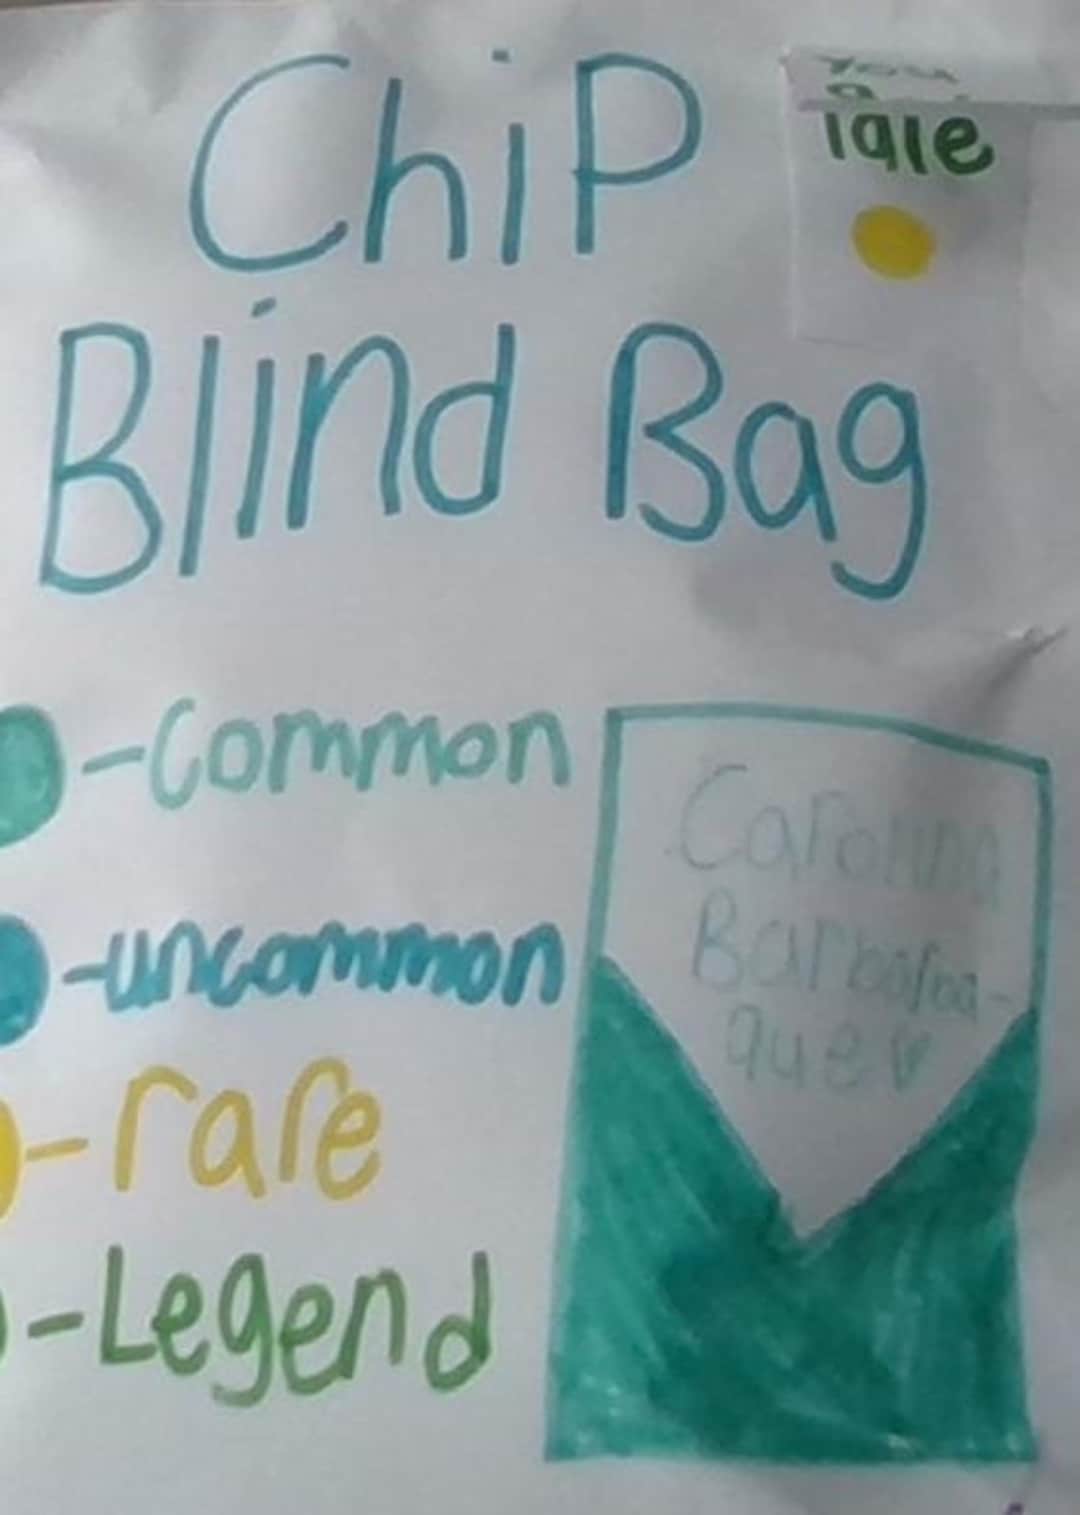 ChiP
Blind Bag
You
a
rare
-Common
-uncommon
-rare
-Legend
Carolina
Barbaraa-
que